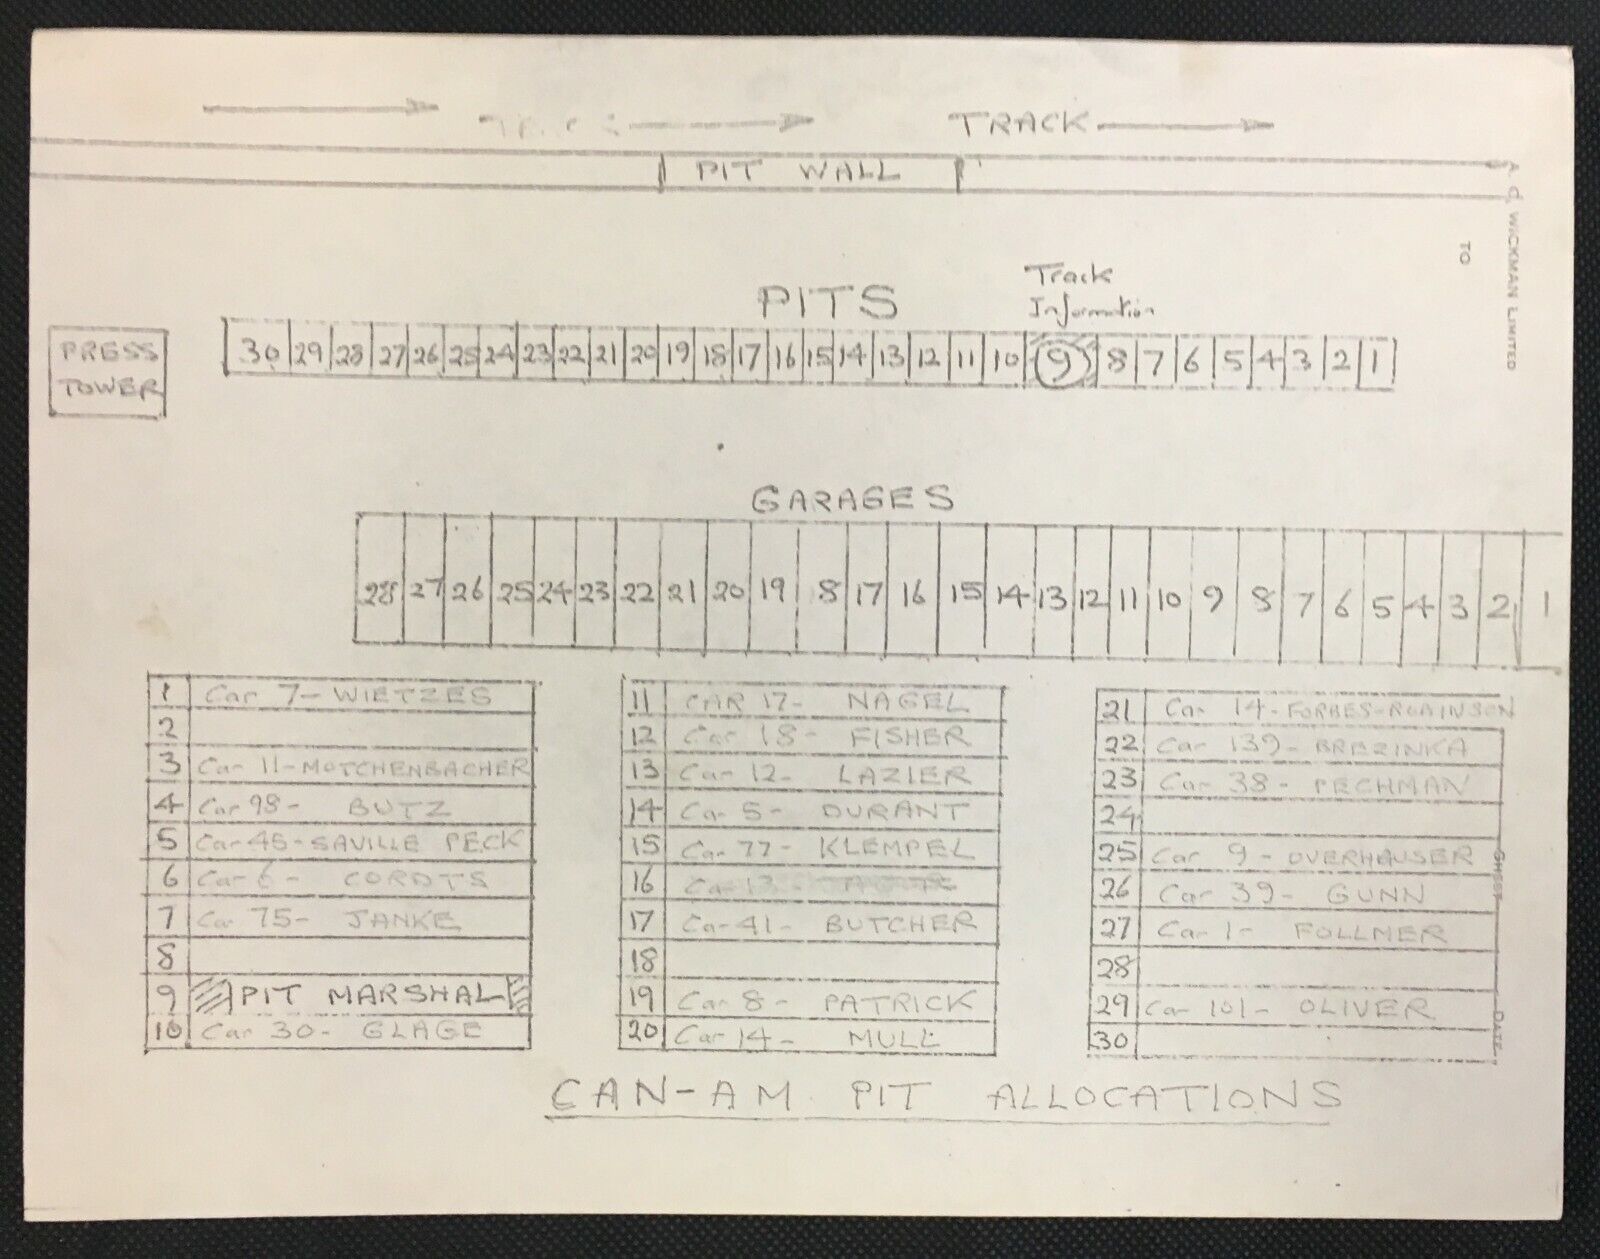 TRACK
PIT WALL
A. C. WICKMAN LIMITED
TO
Track
Information
PITS
PRESS
TOWER
30 29 28 27 26 25 24 23 22 21 20 19 18 17 16 15 14 13 12 11 10 9 8 7 6 5 4 3 2 1
GARAGES
28 27 26 25 24 23 22 21 20 19 18 17 16 15 14 13 12 11 10 9 8 7 6 5 4 3 2 1
1 Car 7- WIETZES
2
3 Car 11-MOTCHENBACHER
4 Car 98- BUTZ
5 Car 45-SAVILLE PECK
6 Car 6- CORDTS
7 Car 75- JANKE
8
9 PIT MARSHAL
10 Car 30- GLAGE
11 CAR 17- NAGEL
12 Car 18- FISHER
13 Car 12- LAZIER
14 Car 5- DURANT
15 Car 77- KLEMPEL
16 Car 13-
17 Car 41- BUTCHER
18
19 Car 8- PATRICK
20 Car 14- MULL
21 Car 14-FORBES-ROBINSON
22 Car 139- BREZINKA
23 Car 38- PECHMAN
24
25 Car 9- OVERHAUSER
26 Car 39- GUNN
27 Car 1- FOLLMER
28
29 Car 101- OLIVER
30
DATE
CAN-AM PIT ALLOCATIONS